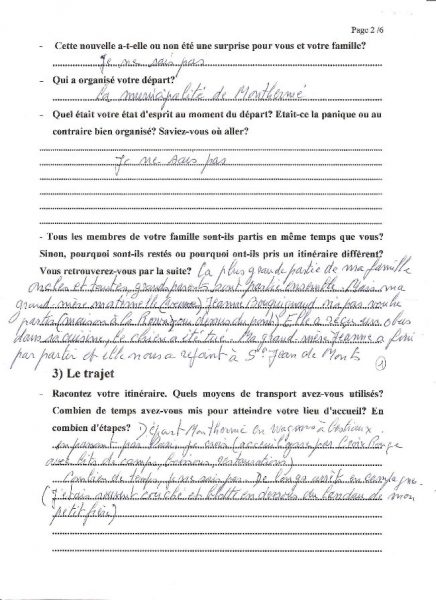 Page 2 /6
- Cette nouvelle a-t-elle ou non été une surprise pour vous et votre famille?
Je ne sais pas
- Qui a organisé votre départ?
La municipalité de Monthermé
- Quel était votre état d'esprit au moment du départ? Etait-ce la panique ou au
contraire bien organisé? Saviez-vous où aller?
Je ne sais pas
- Tous les membres de votre famille sont-ils partis en même temps que vous?
Sinon, pourquoi sont-ils restés ou pourquoi ont-ils pris un itinéraire différent?
Vous retrouverez-vous par la suite? La plus grande partie de ma famille
oncles et tantes, grands parents sont partis ensemble. Mais ma
grand-mère maternelle Jeanne n'a pas voulu
partir (maison à la au dessus du pont) Elle a reçu un obus
dans sa cuisine, le chien a été tué. Ma grand-mère Jeanne a fini
par partir et elle nous a rejoint à St Jean de Monts
1
3) Le trajet
- Racontez votre itinéraire. Quels moyens de transport avez-vous utilisés?
Combien de temps avez-vous mis pour atteindre votre lieu d'accueil? En
combien d'étapes? Départ Monthermé en wagons à bestiaux
en passant par je crois (accueil gare par Croix Rouge
avec lits de camps,
Combien de temps, je ne sais pas. De longs arrêts en campagne
(J'étais souvent couché et en dessous du landau de mon
petit frère)